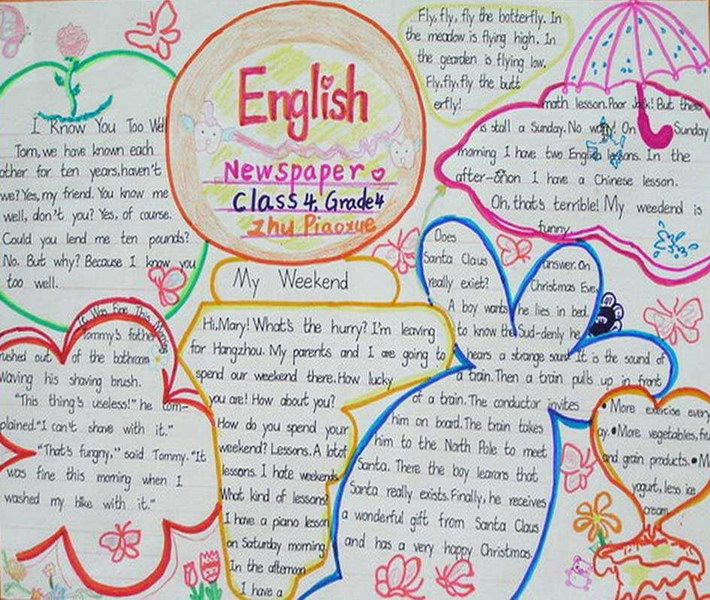 English
Newspaper
Class 4. Grade 4
Zhu Piaoxue
Fly, fly, fly the botterfly. In
the meadow is flying high. In
the gearden is flying low.
Fly, fly, fly the butt
erfly!
I Know You Too Well
Tom, we have known each
other for ten years, haven't
we? Yes, my friend. You know me
well, don't you? Yes, of course.
Could you lend me ten pounds?
No. But why? Because I know you
too well.
My Weekend
Hi, Mary! What's the hurry? I'm leaving
for Hangzhou. My parents and I are going to
spend our weekend there. How lucky
you are! How about you?
How do you spend your
weekend? Lessons. A lot of
lessons. I hate weekends
What kind of lessons?
I have a piano lesson
on Saturday morning.
In the afternoon
I have a
math lesson. Poor Jack! But there
is stall a Sunday. No worry! On Sunday
morning I have two English lessons. In the
after-noon I have a Chinese lesson.
Oh, that's terrible! My weedend is
funny.
It Was Fine This Morning
Tommy's father
rushed out of the bathroom
waving his shaving brush.
"This thing's useless!" he com-
plained. "I can't shave with it."
"That's fungny," said Tommy. "It
was fine this morning when I
washed my bike with it."
Does
Santa Claus
really exiet?
A boy wants
to know the
answer. On
Christmas Eve,
he lies in bed.
Sud-denly he
hears a strange sound. It is the sound of
a train. Then a train pulls up in front
of a train. The conductor invites
him on board. The train takes
him to the North Pole to meet
Santa. There the boy learans that
Santa really exists. Finally, he receives
a wonderful gift from Santa Claus
and has a very happy Christmas.
• More exercise every
ay. • More vegetables, fru
and grain products. • M
yogurt, less ice
cream.